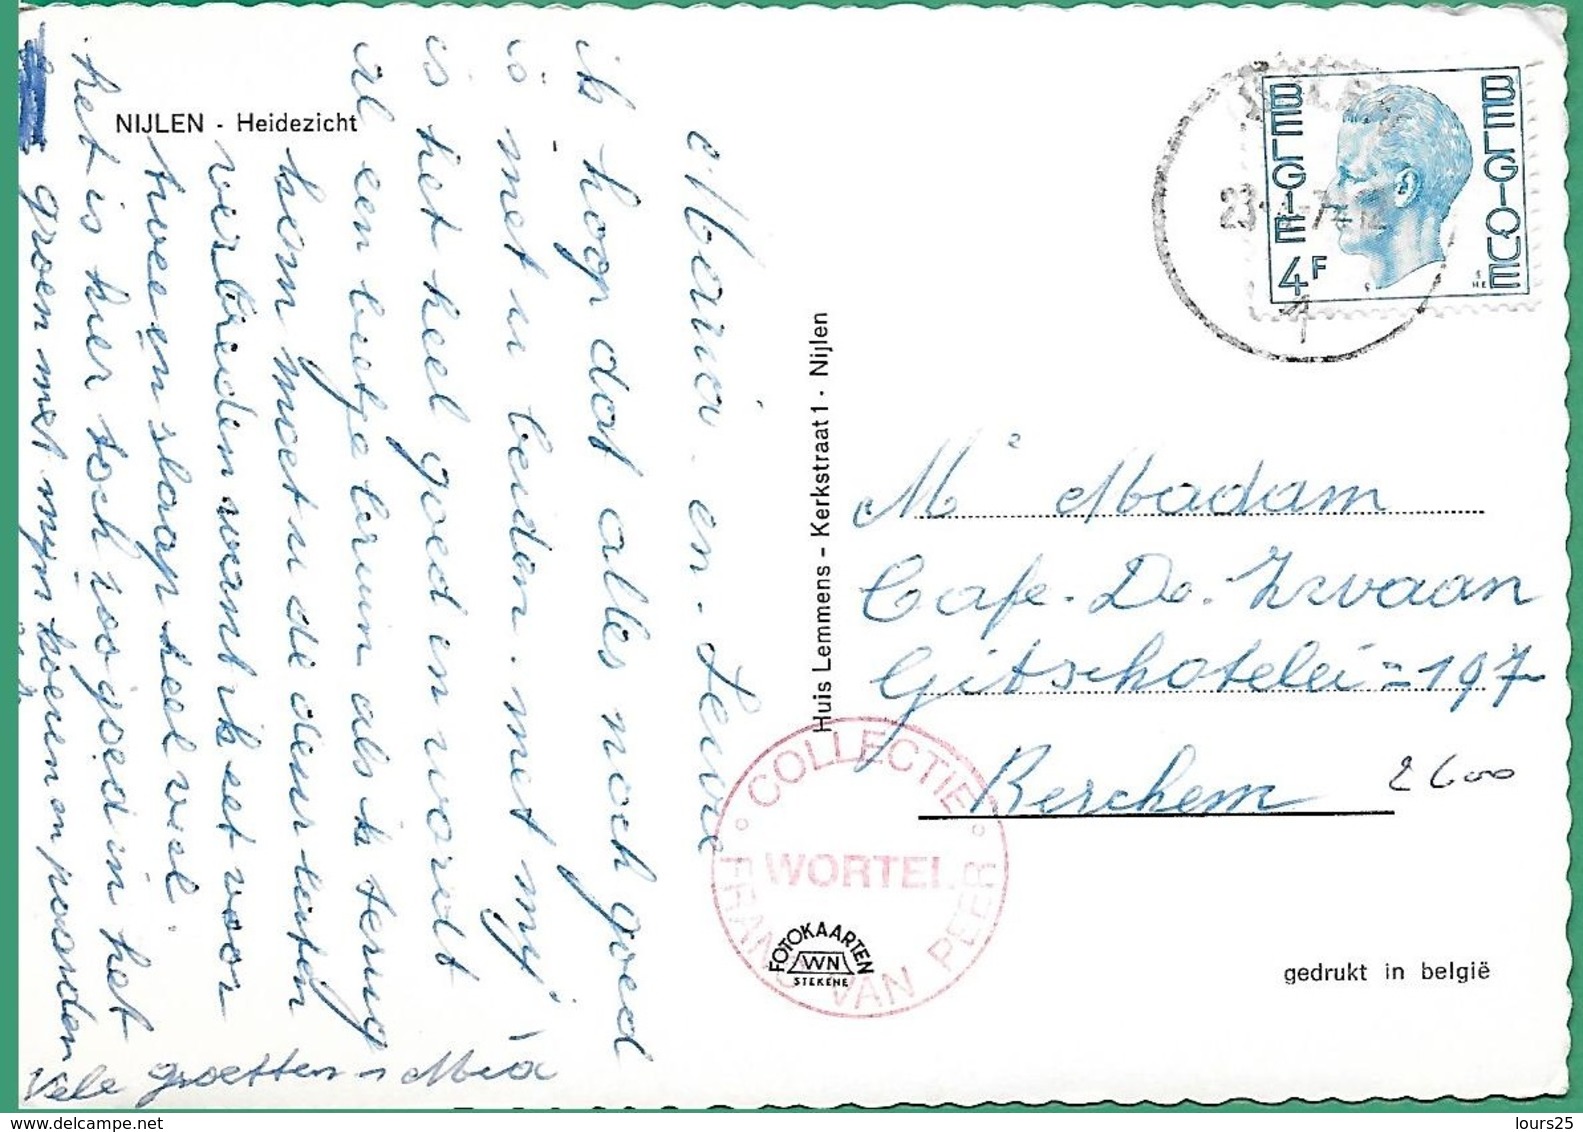 NIJLEN - Heidezicht
Maria en Lewie
ik hoop dat alles noch goed
is met u beiden. met mij
is het heel goed en wordt
al een beetje bruin als ik terug
kem moet u de deur laten
verbreiden want ik set voor
tween slaap heel veel.
het is hier toch zoo goed in het
groen met mijn koeien en paarden
Vele groetten - Mia
Huis Lemmens - Kerkstraat 1 - Nijlen
BELGIE BELGIQUE
4F
23
1
Me Madam
Cafe. De. Zwaan
Gitschotelei = 197
Berchem 2600
COLLECTIE
WORTEL
FRANS VAN PEER
FOTOKAARTEN
VVN
STEKENE
gedrukt in belgië
www.delcampe.net
lours25